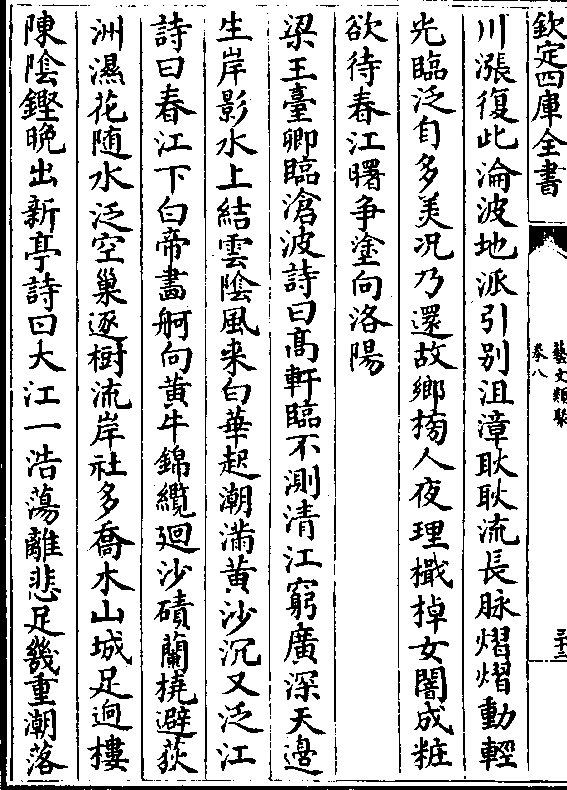 欽定四庫全書
藝文類聚
卷八
三十二
川漲復此淪波地派引别沮漳耿耿流長脉熠熠動輕
光臨泛自多美况乃還故鄉榜人夜理檝棹女闇成粧
欲待春江曙争塗向洛陽
梁王臺卿臨滄波詩曰髙軒臨不測清江窮廣深天邉
生岸影水上結雲陰風来白華起潮滿黄沙沉又泛江
詩曰春江下白帝畵舸向黄牛錦纜廻沙磧蘭橈避荻
洲濕花随水泛空巢逐樹流岸社多喬木山城足逈樓
陳陰鏗晩出新亭詩曰大江一浩蕩離悲足幾重潮落